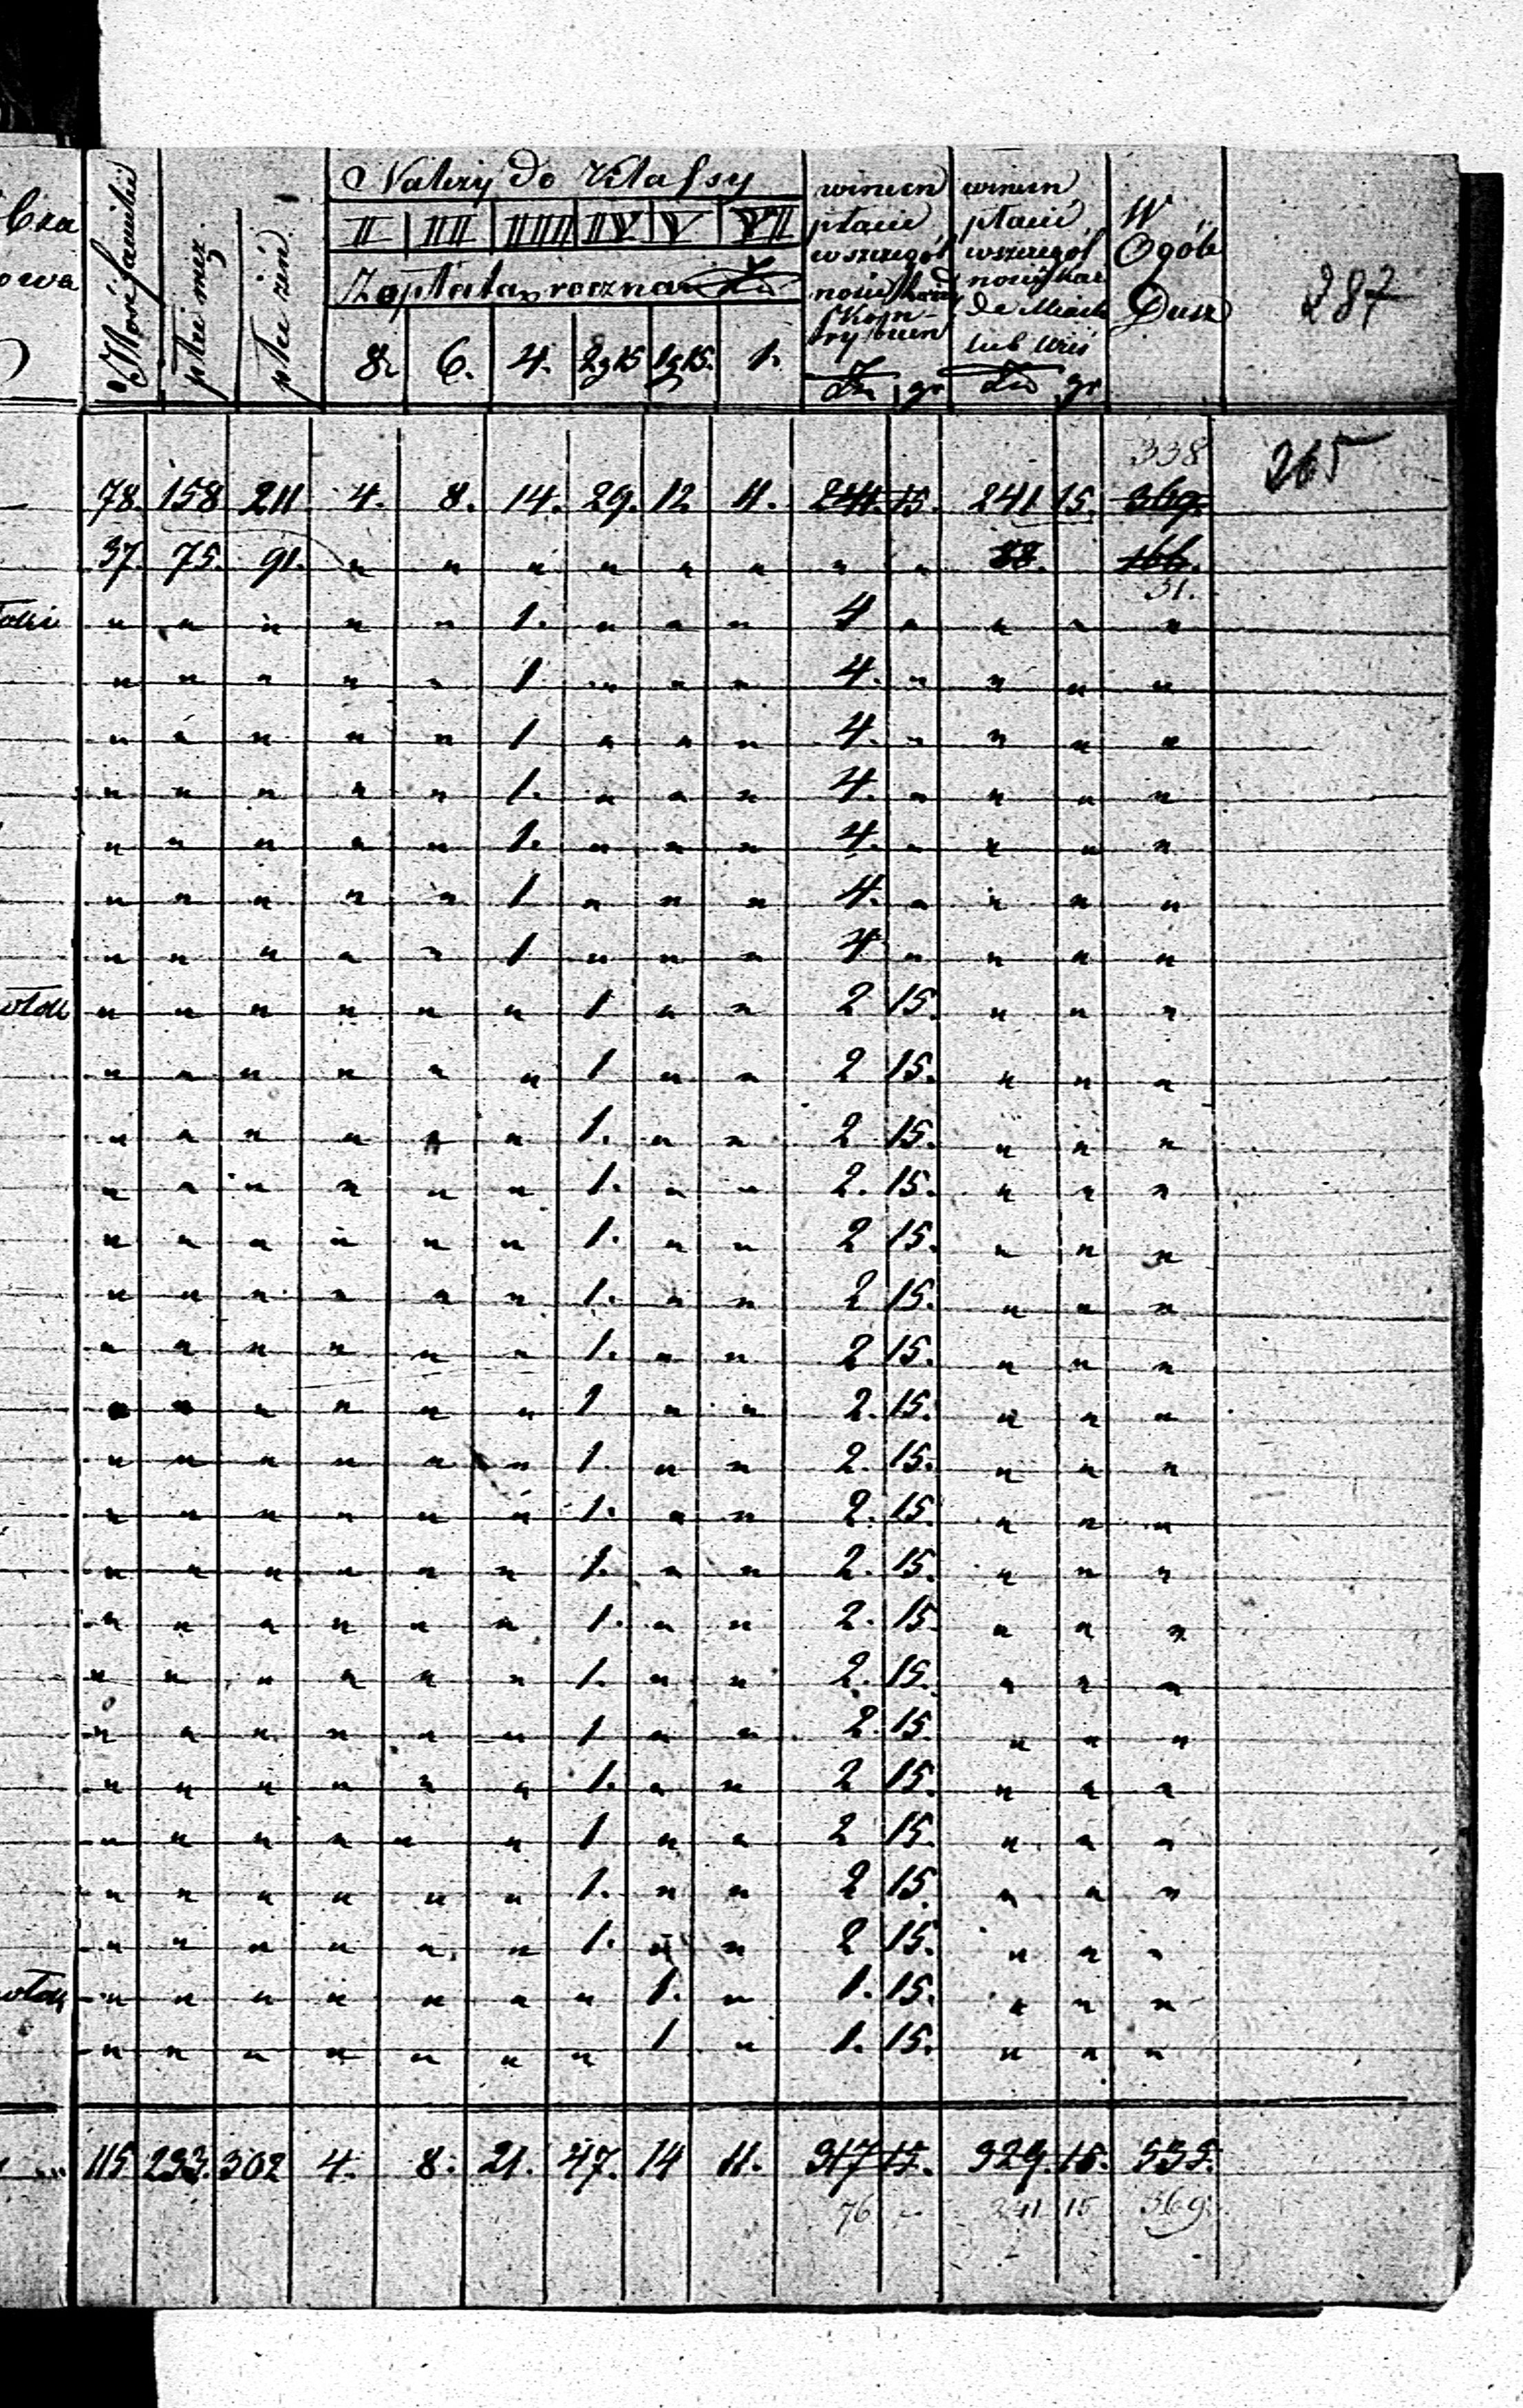 Ilość familii | płci męż. | płci żeń. | Należy do Klassy | winien płacić wszczegól | winien płacić wszczegól | W Ogóle Dusz | 287
II | III | IIII | IV | V | VI
Zapłata roczna Zł
8. | 6. | 4. | 2 g 15 | 1 g 15. | 1. | Zł | gr | Zł | gr
338 | 265
78. | 158 | 211 | 4. | 8. | 14. | 29. | 12 | 11. | 241. | 15. | 241 | 15. | 369.
37. | 75. | 91. | " | " | " | " | " | " | " | " | 88. | | 166.
31.
" | " | " | " | " | 1. | " | " | " | 4 | " | " | " | "
" | " | " | " | " | 1 | " | " | " | 4. | " | " | " | "
" | " | " | " | " | 1 | " | " | " | 4. | " | " | " | "
" | " | " | " | " | 1. | " | " | " | 4. | " | " | " | "
" | " | " | " | " | 1. | " | " | " | 4. | " | " | " | "
" | " | " | " | " | 1 | " | " | " | 4. | " | " | " | "
" | " | " | " | " | 1 | " | " | " | 4 | " | " | " | "
" | " | " | " | " | " | 1 | " | " | 2 | 15. | " | " | "
" | " | " | " | " | " | 1 | " | " | 2 | 15. | " | " | "
" | " | " | " | " | " | 1. | " | " | 2 | 15. | " | " | "
" | " | " | " | " | " | 1. | " | " | 2. | 15. | " | " | "
" | " | " | " | " | " | 1. | " | " | 2 | 15. | " | " | "
" | " | " | " | " | " | 1. | " | " | 2 | 15. | " | " | "
" | " | " | " | " | " | 1. | " | " | 2 | 15. | " | " | "
" | " | " | " | " | " | 1 | " | " | 2. | 15. | " | " | "
" | " | " | " | " | " | 1. | " | " | 2. | 15. | " | " | "
" | " | " | " | " | " | 1. | " | " | 2. | 15. | " | " | "
" | " | " | " | " | " | 1. | " | " | 2. | 15. | " | " | "
" | " | " | " | " | " | 1. | " | " | 2. | 15 | " | " | "
" | " | " | " | " | " | 1. | " | " | 2. | 15. | " | " | "
" | " | " | " | " | " | 1. | " | " | 2. | 15. | " | " | "
" | " | " | " | " | " | 1. | " | " | 2 | 15. | " | " | "
" | " | " | " | " | " | 1 | " | " | 2 | 15. | " | " | "
" | " | " | " | " | " | 1. | " | " | 2 | 15. | " | " | "
" | " | " | " | " | " | 1. | " | " | 2 | 15. | " | " | "
" | " | " | " | " | " | " | 1. | " | 1. | 15. | " | " | "
" | " | " | " | " | " | " | 1 | " | 1. | 15. | " | " | "
115 | 233. | 302 | 4. | 8. | 21. | 47. | 14 | 11. | 317 | 15. | 329. | 15. | 535.
76 | - | 241 | 15 | 369.